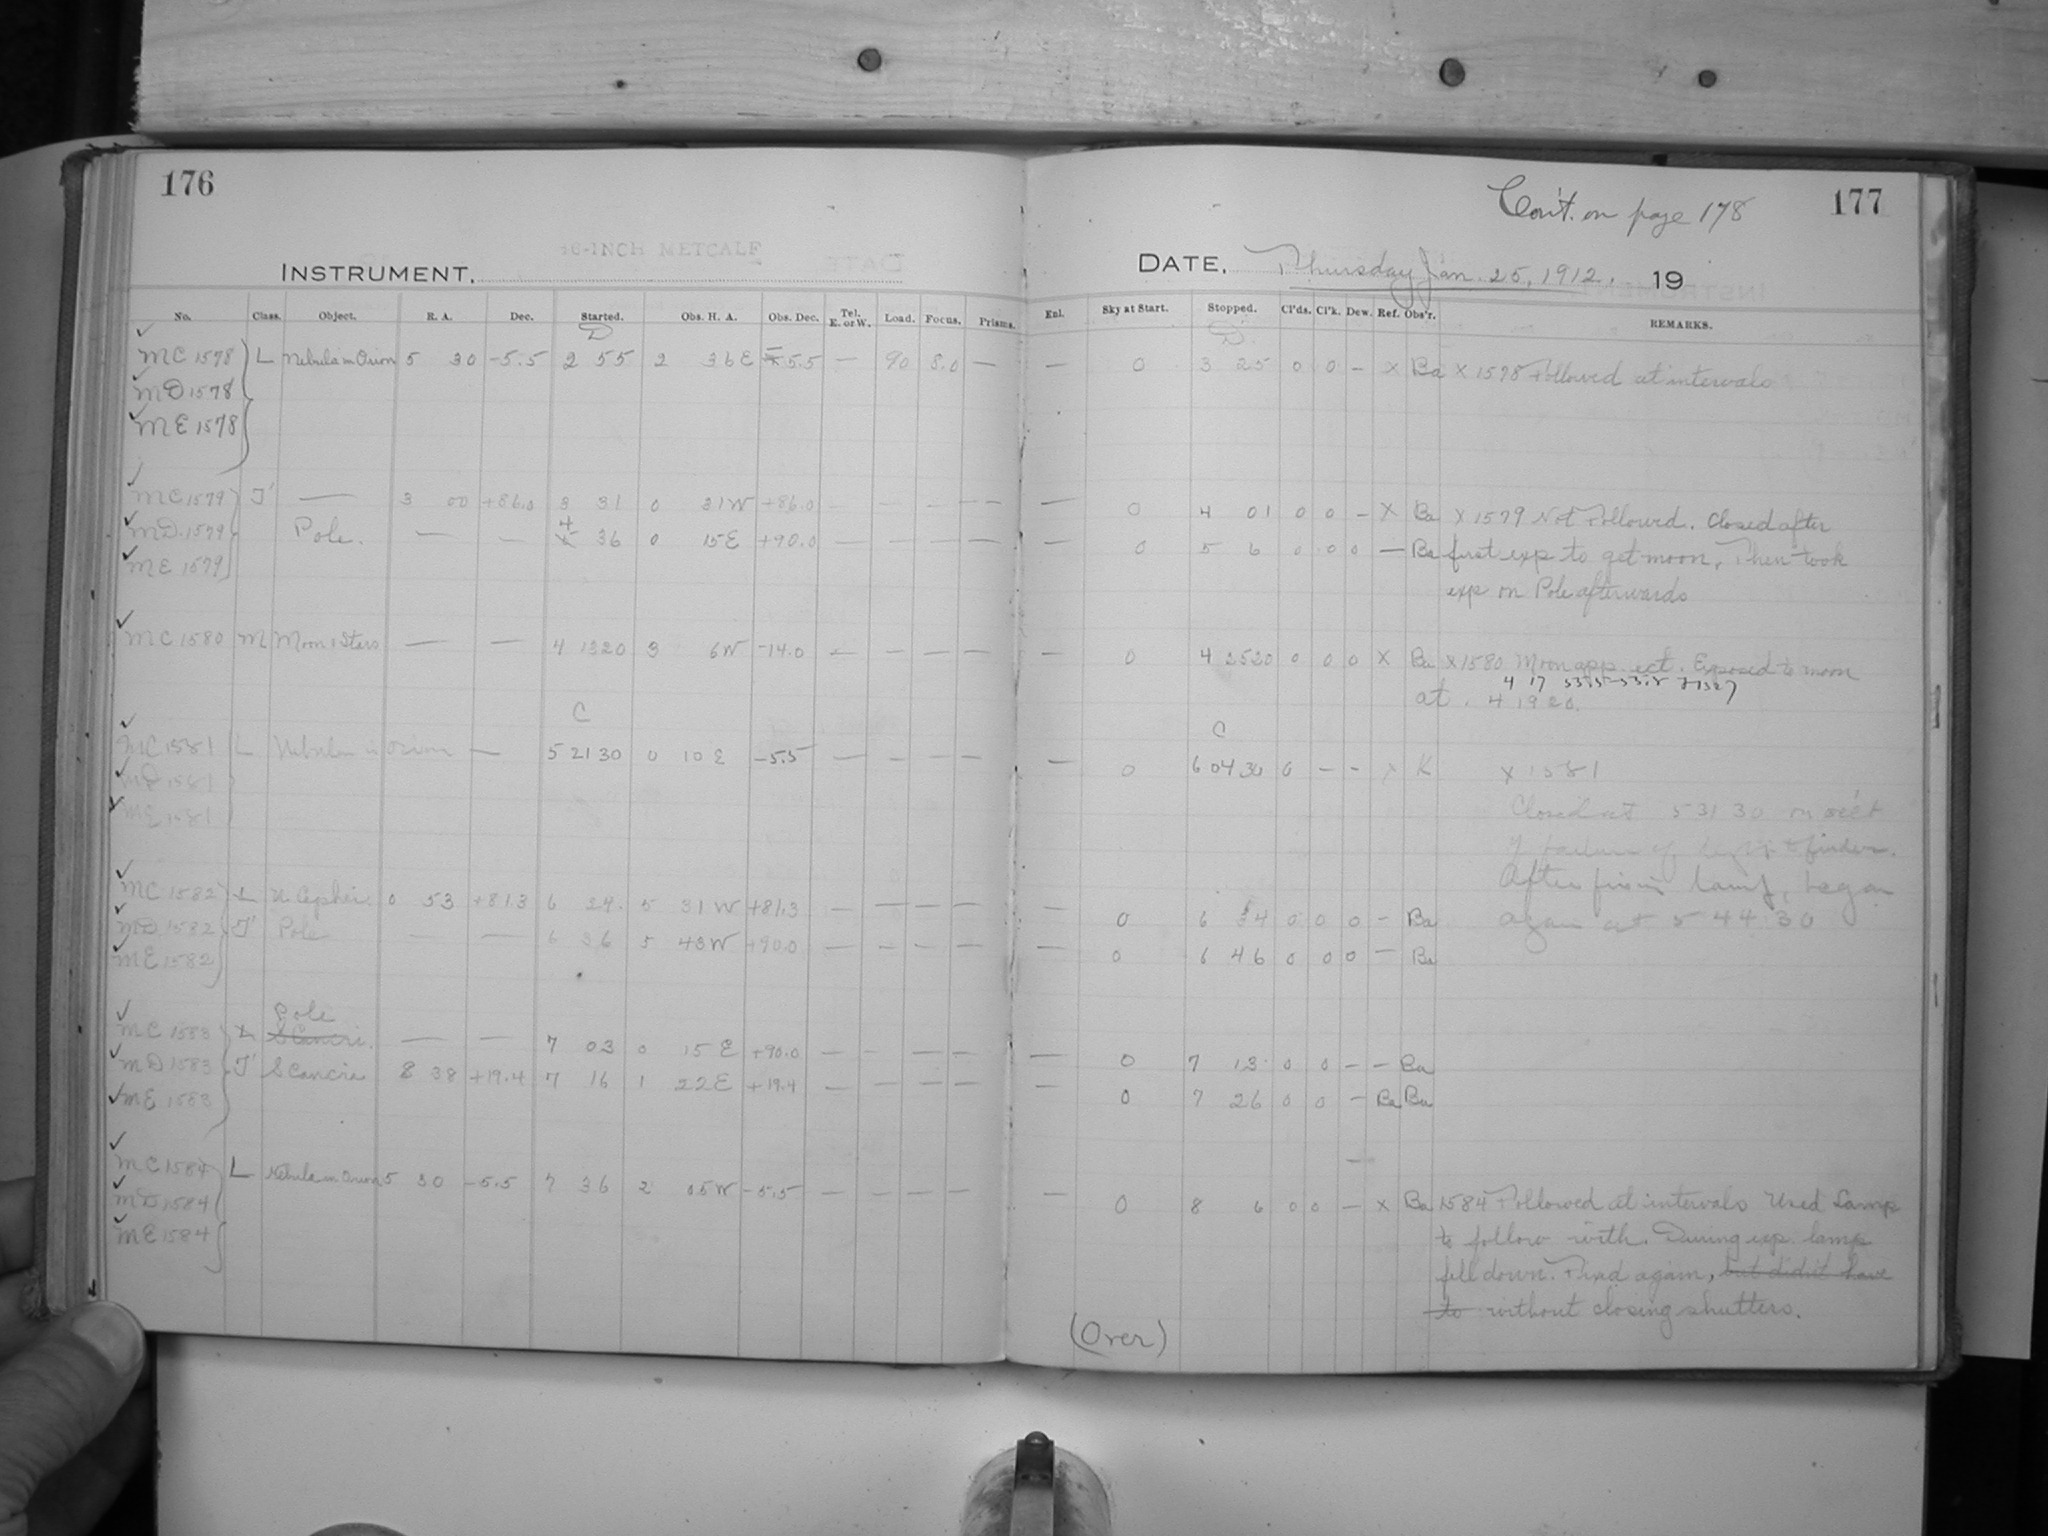 176
16-INCH METCALF
INSTRUMENT.
No. Class. Object. R. A. Dec. Started. Obs. H. A. Obs. Dec. Tel. E. or W. Load. Focus. Prisms.
D
MC 1578 L Nebula in Orion 5 30 -5.5 2 55 2 36 E -5.5 — 90 8.0 —
MD 1578
ME 1578
MC 1579 T' — 3 00 +86.0 3 31 0 31 W +86.0 — — — — —
4
MD 1579 Pole. — — 36 0 15 E +90.0 — — — —
ME 1579
MC 1580 M Moon & Stars — — 4 1320 3 6 W -14.0 — — — — —
C
MC 1581 L Nebula in Orion — 5 21 30 0 10 E -5.5 — — — —
MD 1581
ME 1581
MC 1582 L U Cephei. 0 53 +81.3 6 24 5 31 W +81.3 — — — —
MD 1582 T' Pole — — 6 36 5 43 W +90.0 — — — —
ME 1582
Pole
MC 1583 L S Cancri. — — 7 03 0 15 E +90.0 — — — —
MD 1583 T' S Cancri 8 38 +19.4 7 16 1 22 E +19.4 — — — —
ME 1583
MC 1584 L Nebula in Orion 5 30 -5.5 7 36 2 05 W -5.5 — — — —
MD 1584
ME 1584
Con't. on page 178
177
DATE. Thursday Jan. 25, 1912. 19
Enl. Sky at Start. Stopped. Cl'ds. Cl'k. Dew. Ref. Obs'r. REMARKS.
D.
— 0 3 25 0 0 — X Ba X 1578 Followed at intervals
— 0 4 01 0 0 — X Ba X 1579 Not Followed. Closed after
— 0 5 6 0 0 0 — Ba first exp to get moon. Then took
exp on Pole afterwards
— 0 4 2520 0 0 0 X Ba X 1580 Moon app. ect. Exposed to moon
4 17
at . 4 19 20.
C
— 0 6 04 30 0 — — X K X 1581
Closed at 5 31 30 on acc't
of failure of light to finder.
After fixing lamp, began
— 0 6 34 0 0 0 — Ba again at 5 44 30
— 0 6 46 0 0 0 — Ba
— 0 7 13 0 0 — — Ba
— 0 7 26 0 0 — Ba Ba
— 0 8 6 0 0 — X Ba 1584 Followed at intervals Used Lamp
to follow with. During exp. lamp
fell down. Fixed again, but didn't have
to without closing shutters.
(Over)